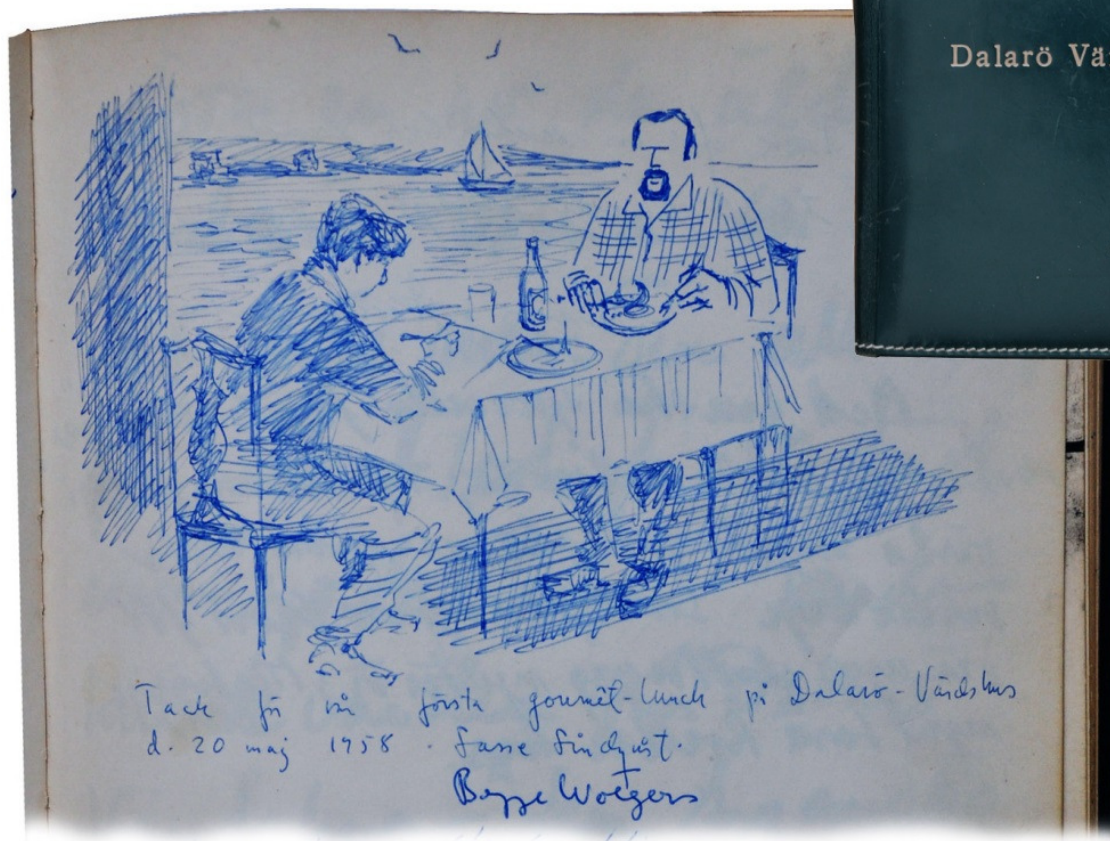 Dalarö Vä
Tack för vår första gourmêt-lunch på Dalarö-Värdshus
d. 20 maj 1958. Lasse Lindqvist.
Beppe Wolgers